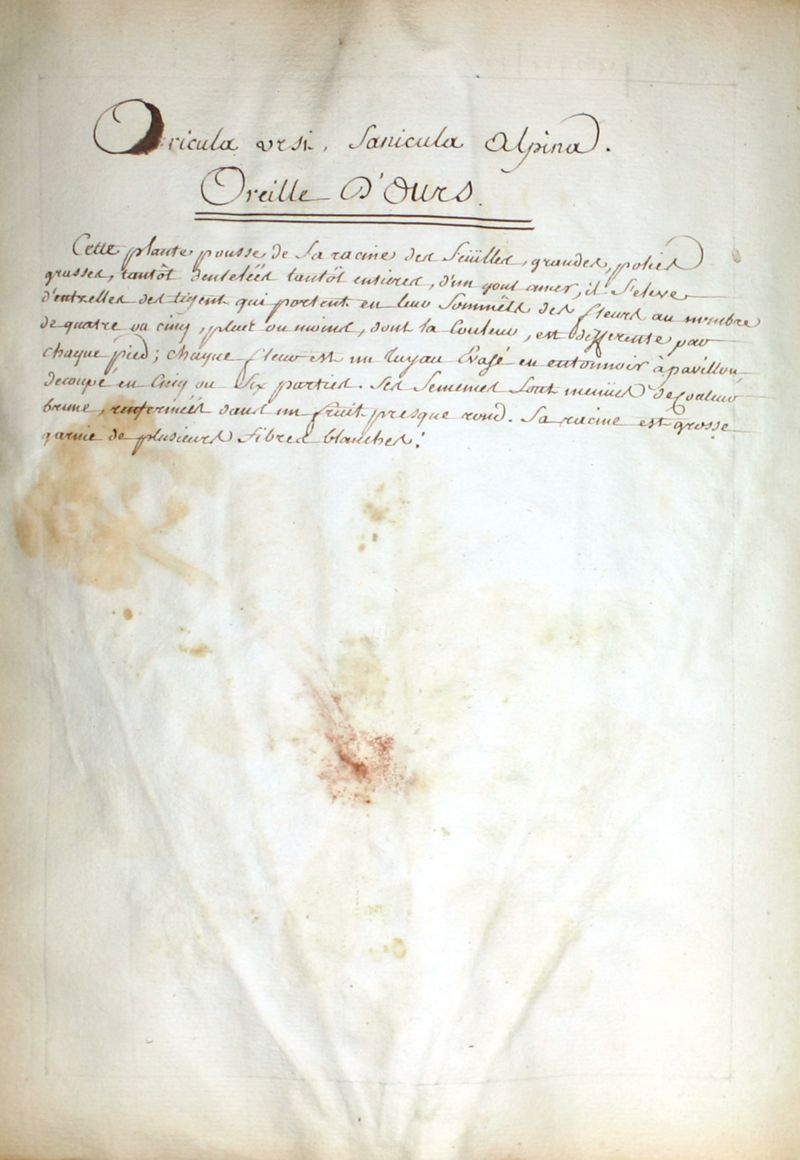 Oricula ursi, Sanicula Alpina.
Oreille D'Ours.
Cette plante pousse de Sa racine des feüilles, grandes, polies
grasses, tantôt denteleés tantôt entieres, d'un gout amer, il S'eleve
d'entrelles des tiges qui portent en leur Sommêts des fleurs au nombre
de quatre ou cinq, plus ou moins, dont la Couleur, est differente par
chaque pied; chaque fleur est un tuyau Evasé en entonnoir à pavillon
decoupé en Cinq ou Six parties. Ses Semences Sont menües de Couleur
brune, renfermeés dans un fruit presque rond. Sa racine est grosse
garnie de plusieurs fibres blanches.